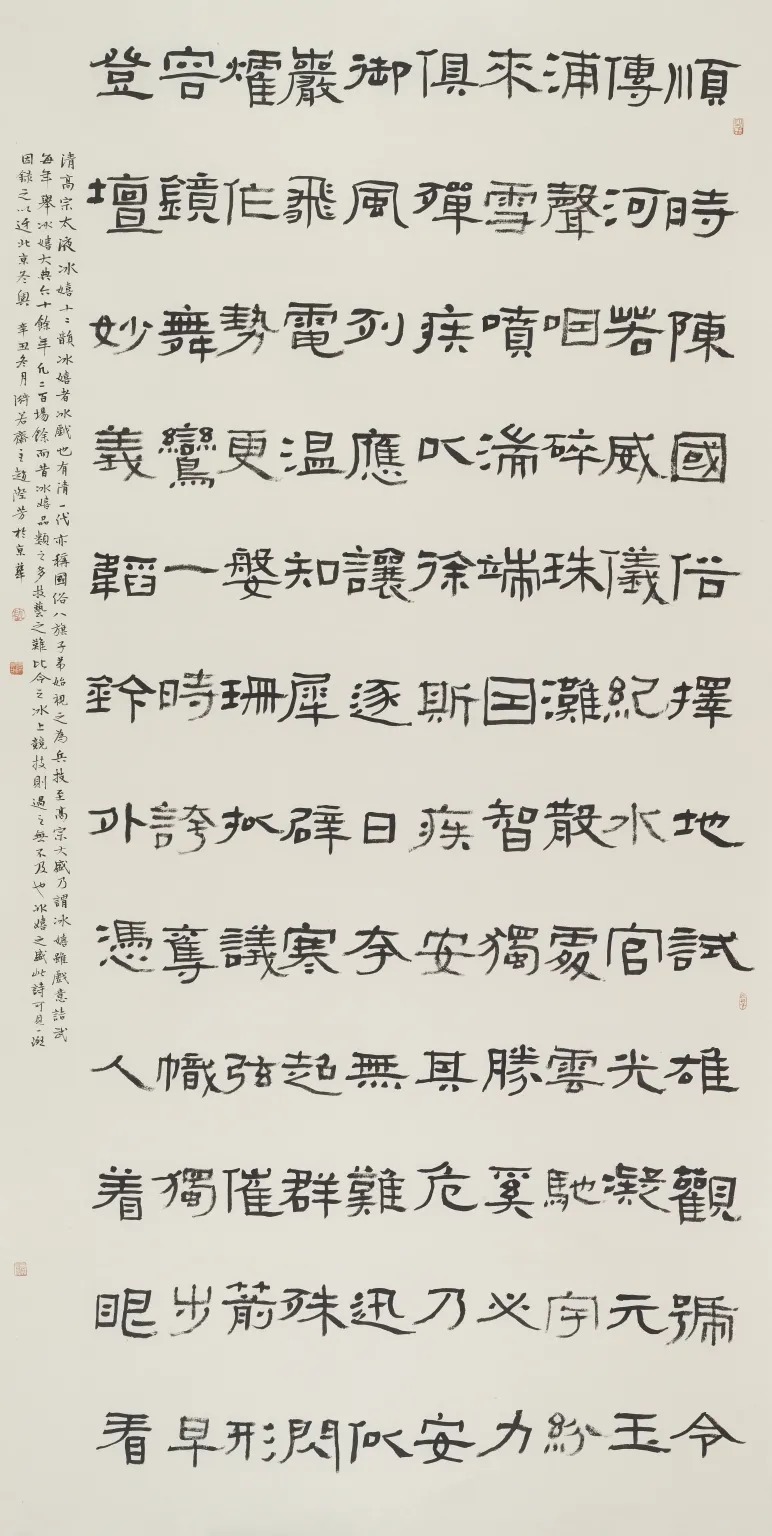 順時陳國俗擇地試雄觀號令
傳河若威儀紀水官光凝元玉
浦聲咽碎珠灘散處雲馳字紛
來雪噴湍端因智獨勝奚必力
俱殫疾以徐斯疾安其危乃安
御風列應讓逐日夸無難迅似
巖飛電温知犀辟寒起群殊閃
燿作勢更媻珊拟議弦催箭形
容鏡舞鸞一時誇奪幟獨步早
登壇妙義韜鈐外憑人着眼看
清高宗太液冰嬉十二韻冰嬉者冰戲也有清一代亦稱國俗八旗子弟始視之為兵技至高宗大盛乃謂冰嬉雖戲意詰武
每年舉冰嬉大典六十餘年凡二百場餘而昔冰嬉品類之多技藝之難比今之冰上競技則過之無不及也冰嬉之盛此詩可見一斑
因錄之以迓北京冬奧辛丑冬月若齋主趙陞芳於京華